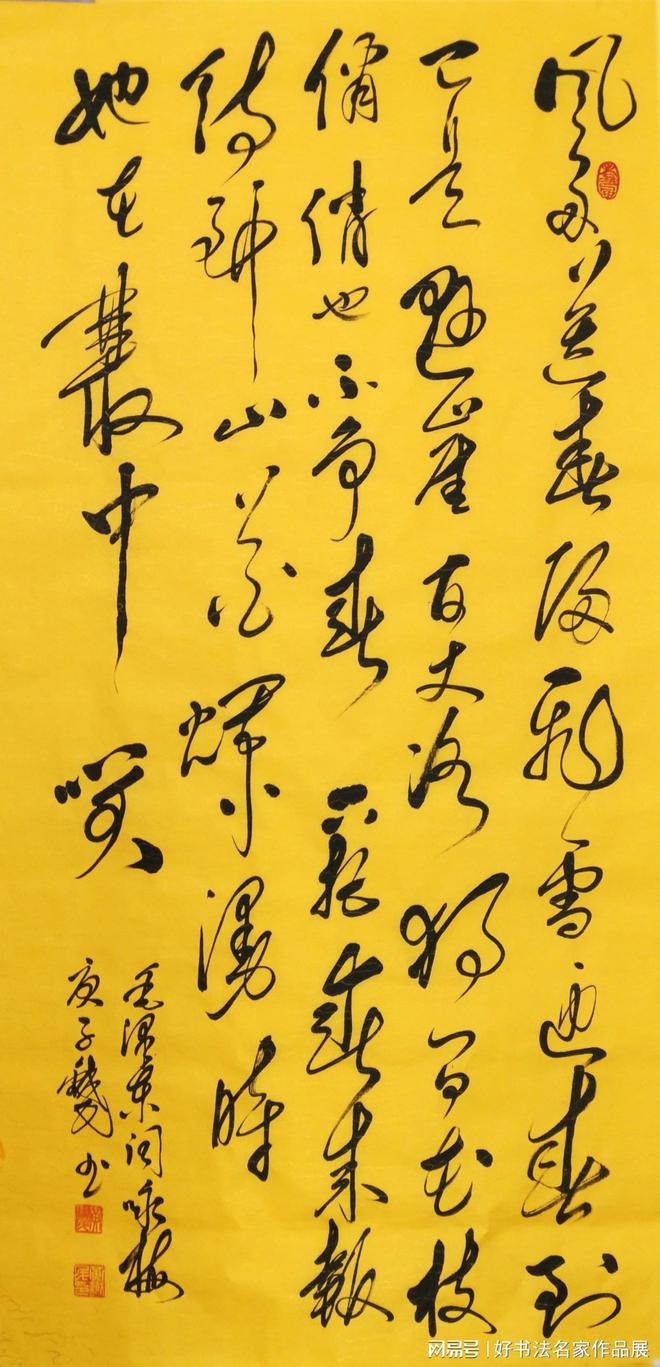 風雨送春歸飛雪迎春到
已是懸崖百丈冰猶有花枝
俏俏也不争春只把春来報
待到山花爛漫時
她在叢中笑
毛澤東詞咏梅
庚子书
网易号 | 好书法名家作品展